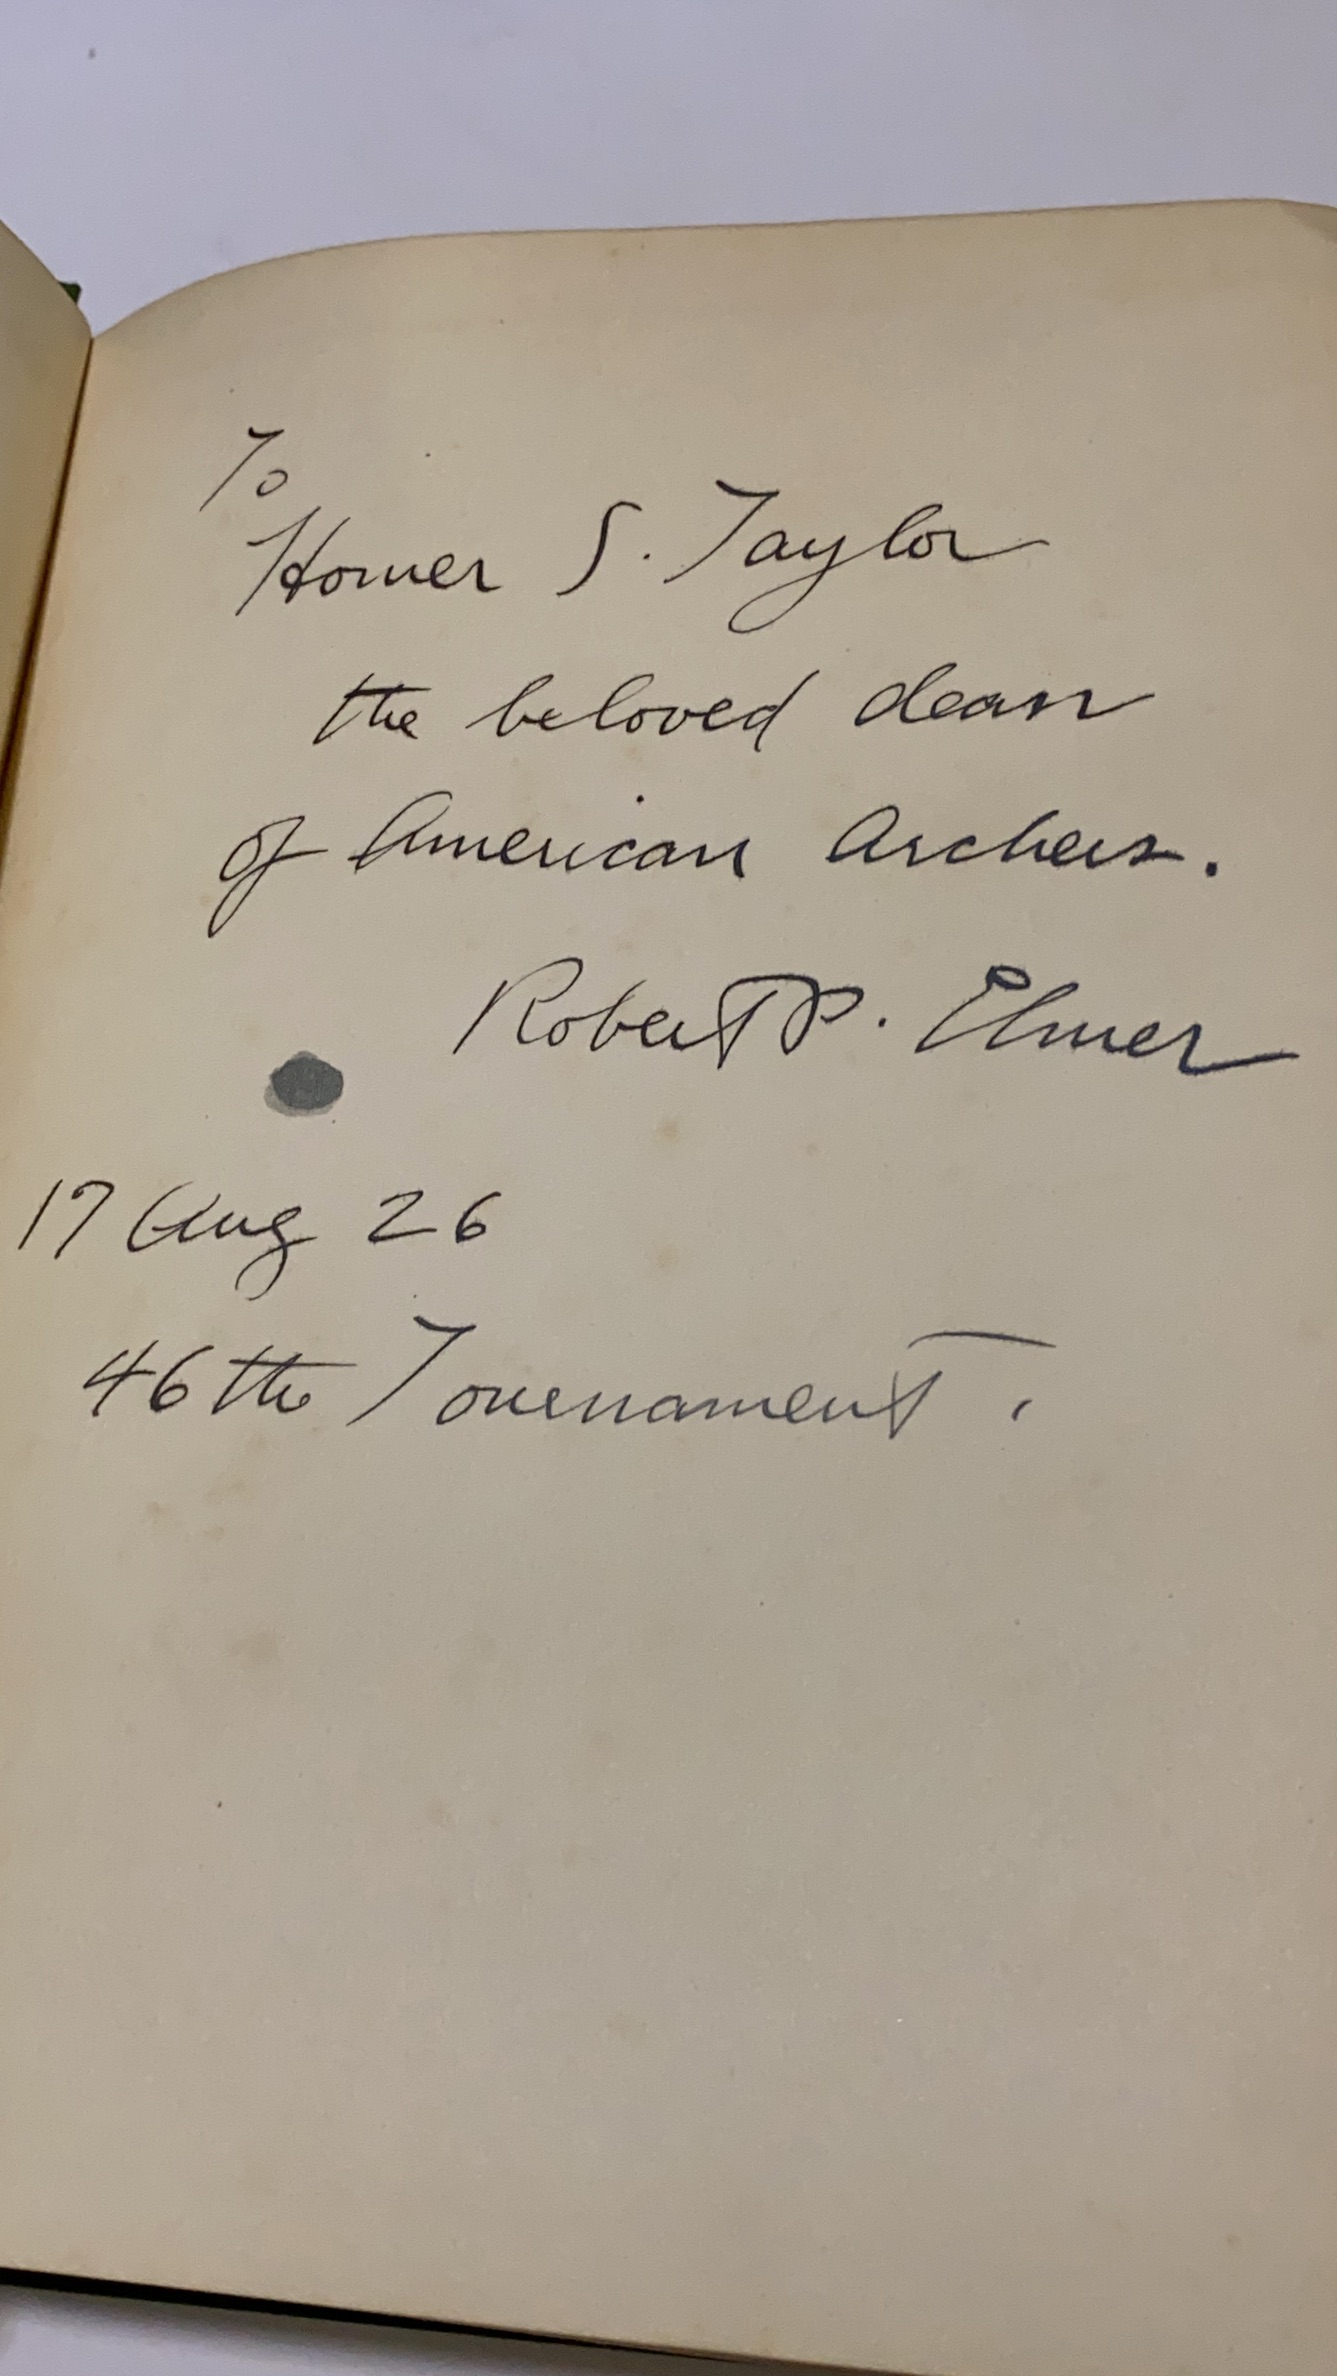 To
Homer S. Taylor
the beloved dean
of American Archers.
Robert P. Elmer
17 Aug 26
46th Tournament.